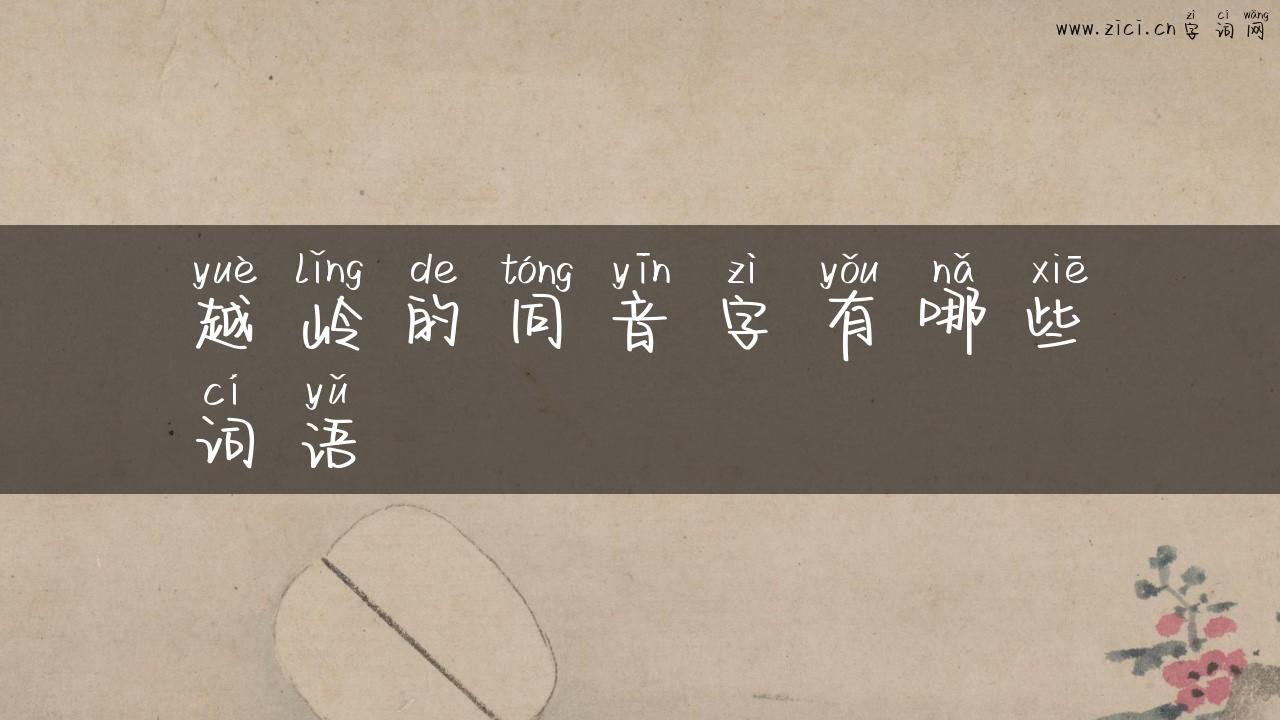 zì cí wǎng
www.zici.cn 字词网
yuè lǐng de tóng yīn zì yǒu nǎ xiē
越岭的同音字有哪些
cí yǔ
词语